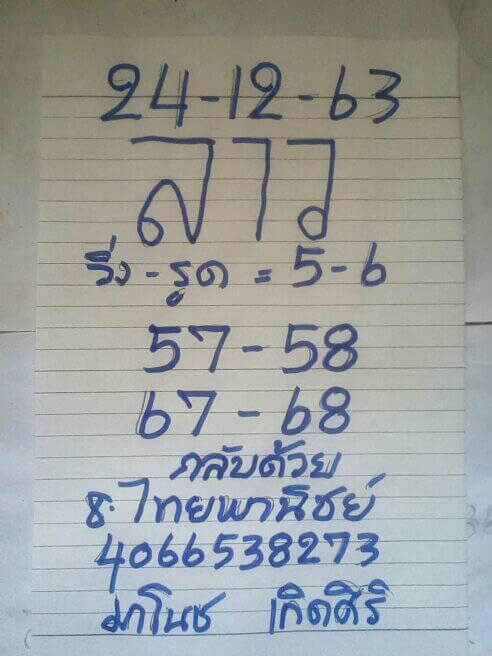 24-12-63
ลาว
วิ่ง-รูด = 5-6
57-58
67-68
กลับด้วย
ธ.ไทยพานิชย์
4066538273
มาโนช เกิดศิริ